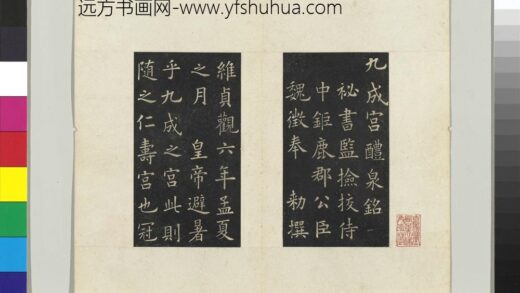 远方书画网-www.yfshuhua.com
九成宫醴泉銘
祕書監撿挍侍
中鉅鹿郡公臣
魏徵奉 勑撰
維貞觀六年孟夏
之月 皇帝避暑
乎九成之宫此則
随之仁壽宫也冠